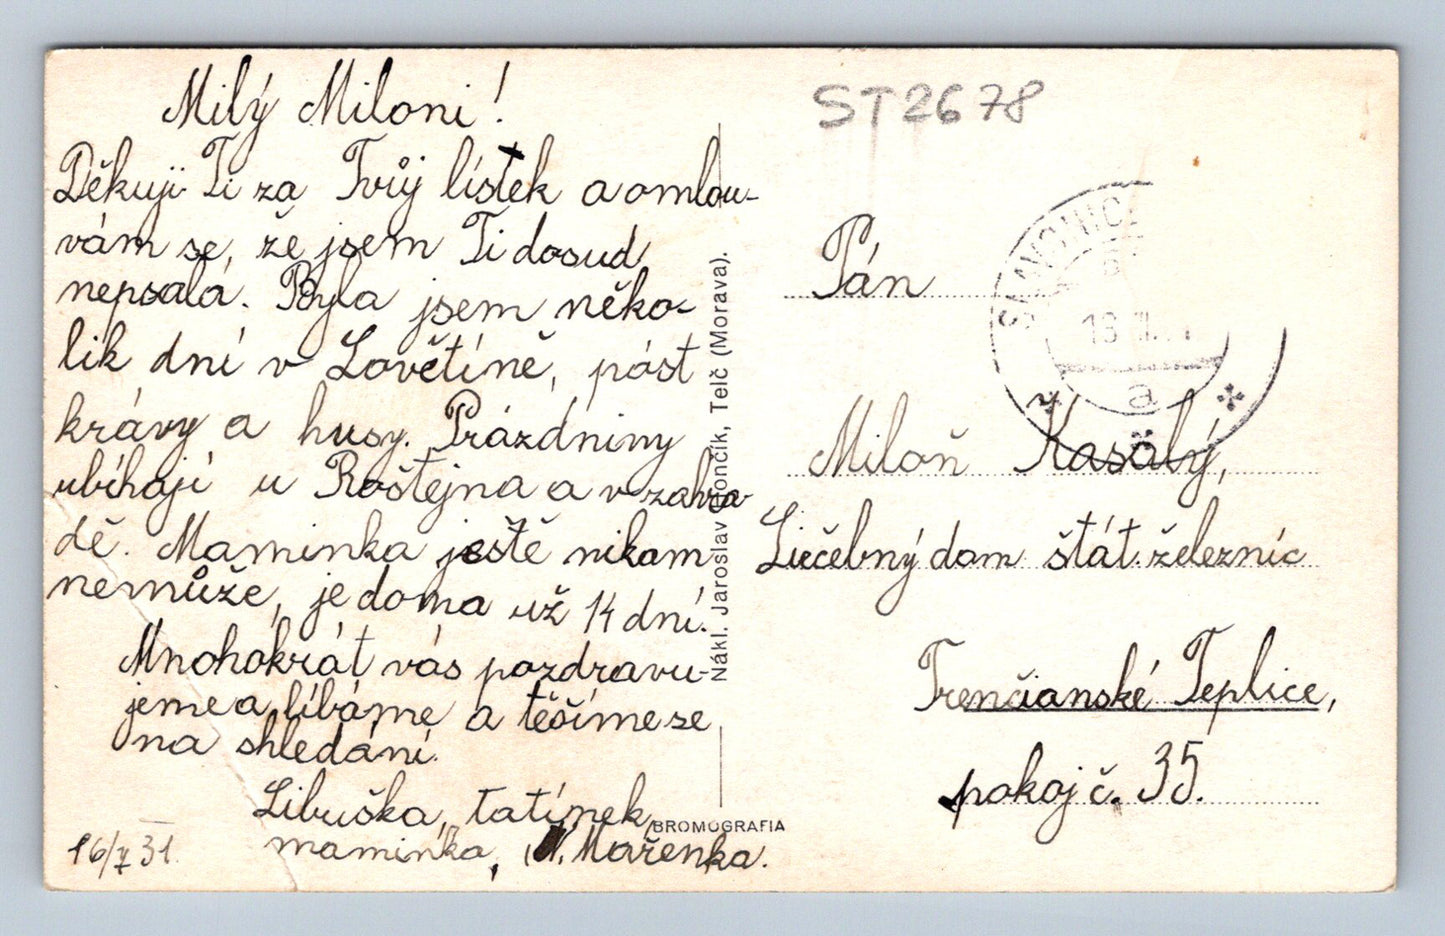 Milý Miloni!
Děkuji Ti za Tvůj lístek a omlou-
vám se, že jsem Ti dosud
nepsala. Byla jsem něko-
lik dní v Lovětíně, pást
krávy a husy. Prázdniny
ubíhají u Roštejna a v zahra-
dě. Maminka ještě nikam
nemůže, je doma už 14 dní.
Mnohokrát vás pozdravu-
jeme a líbáme a těšíme se
na shledání.
Libuška, tatínek,
maminka, Mařenka.
16/ 31.
Nákl. Jaroslav Hončík, Telč (Morava).
BROMOGRAFIA
ST2678
a
Pán
Miloň Kasalý,
Liečebný dom štát. železníc
Trenčianské Teplice,
pokoj č. 35.